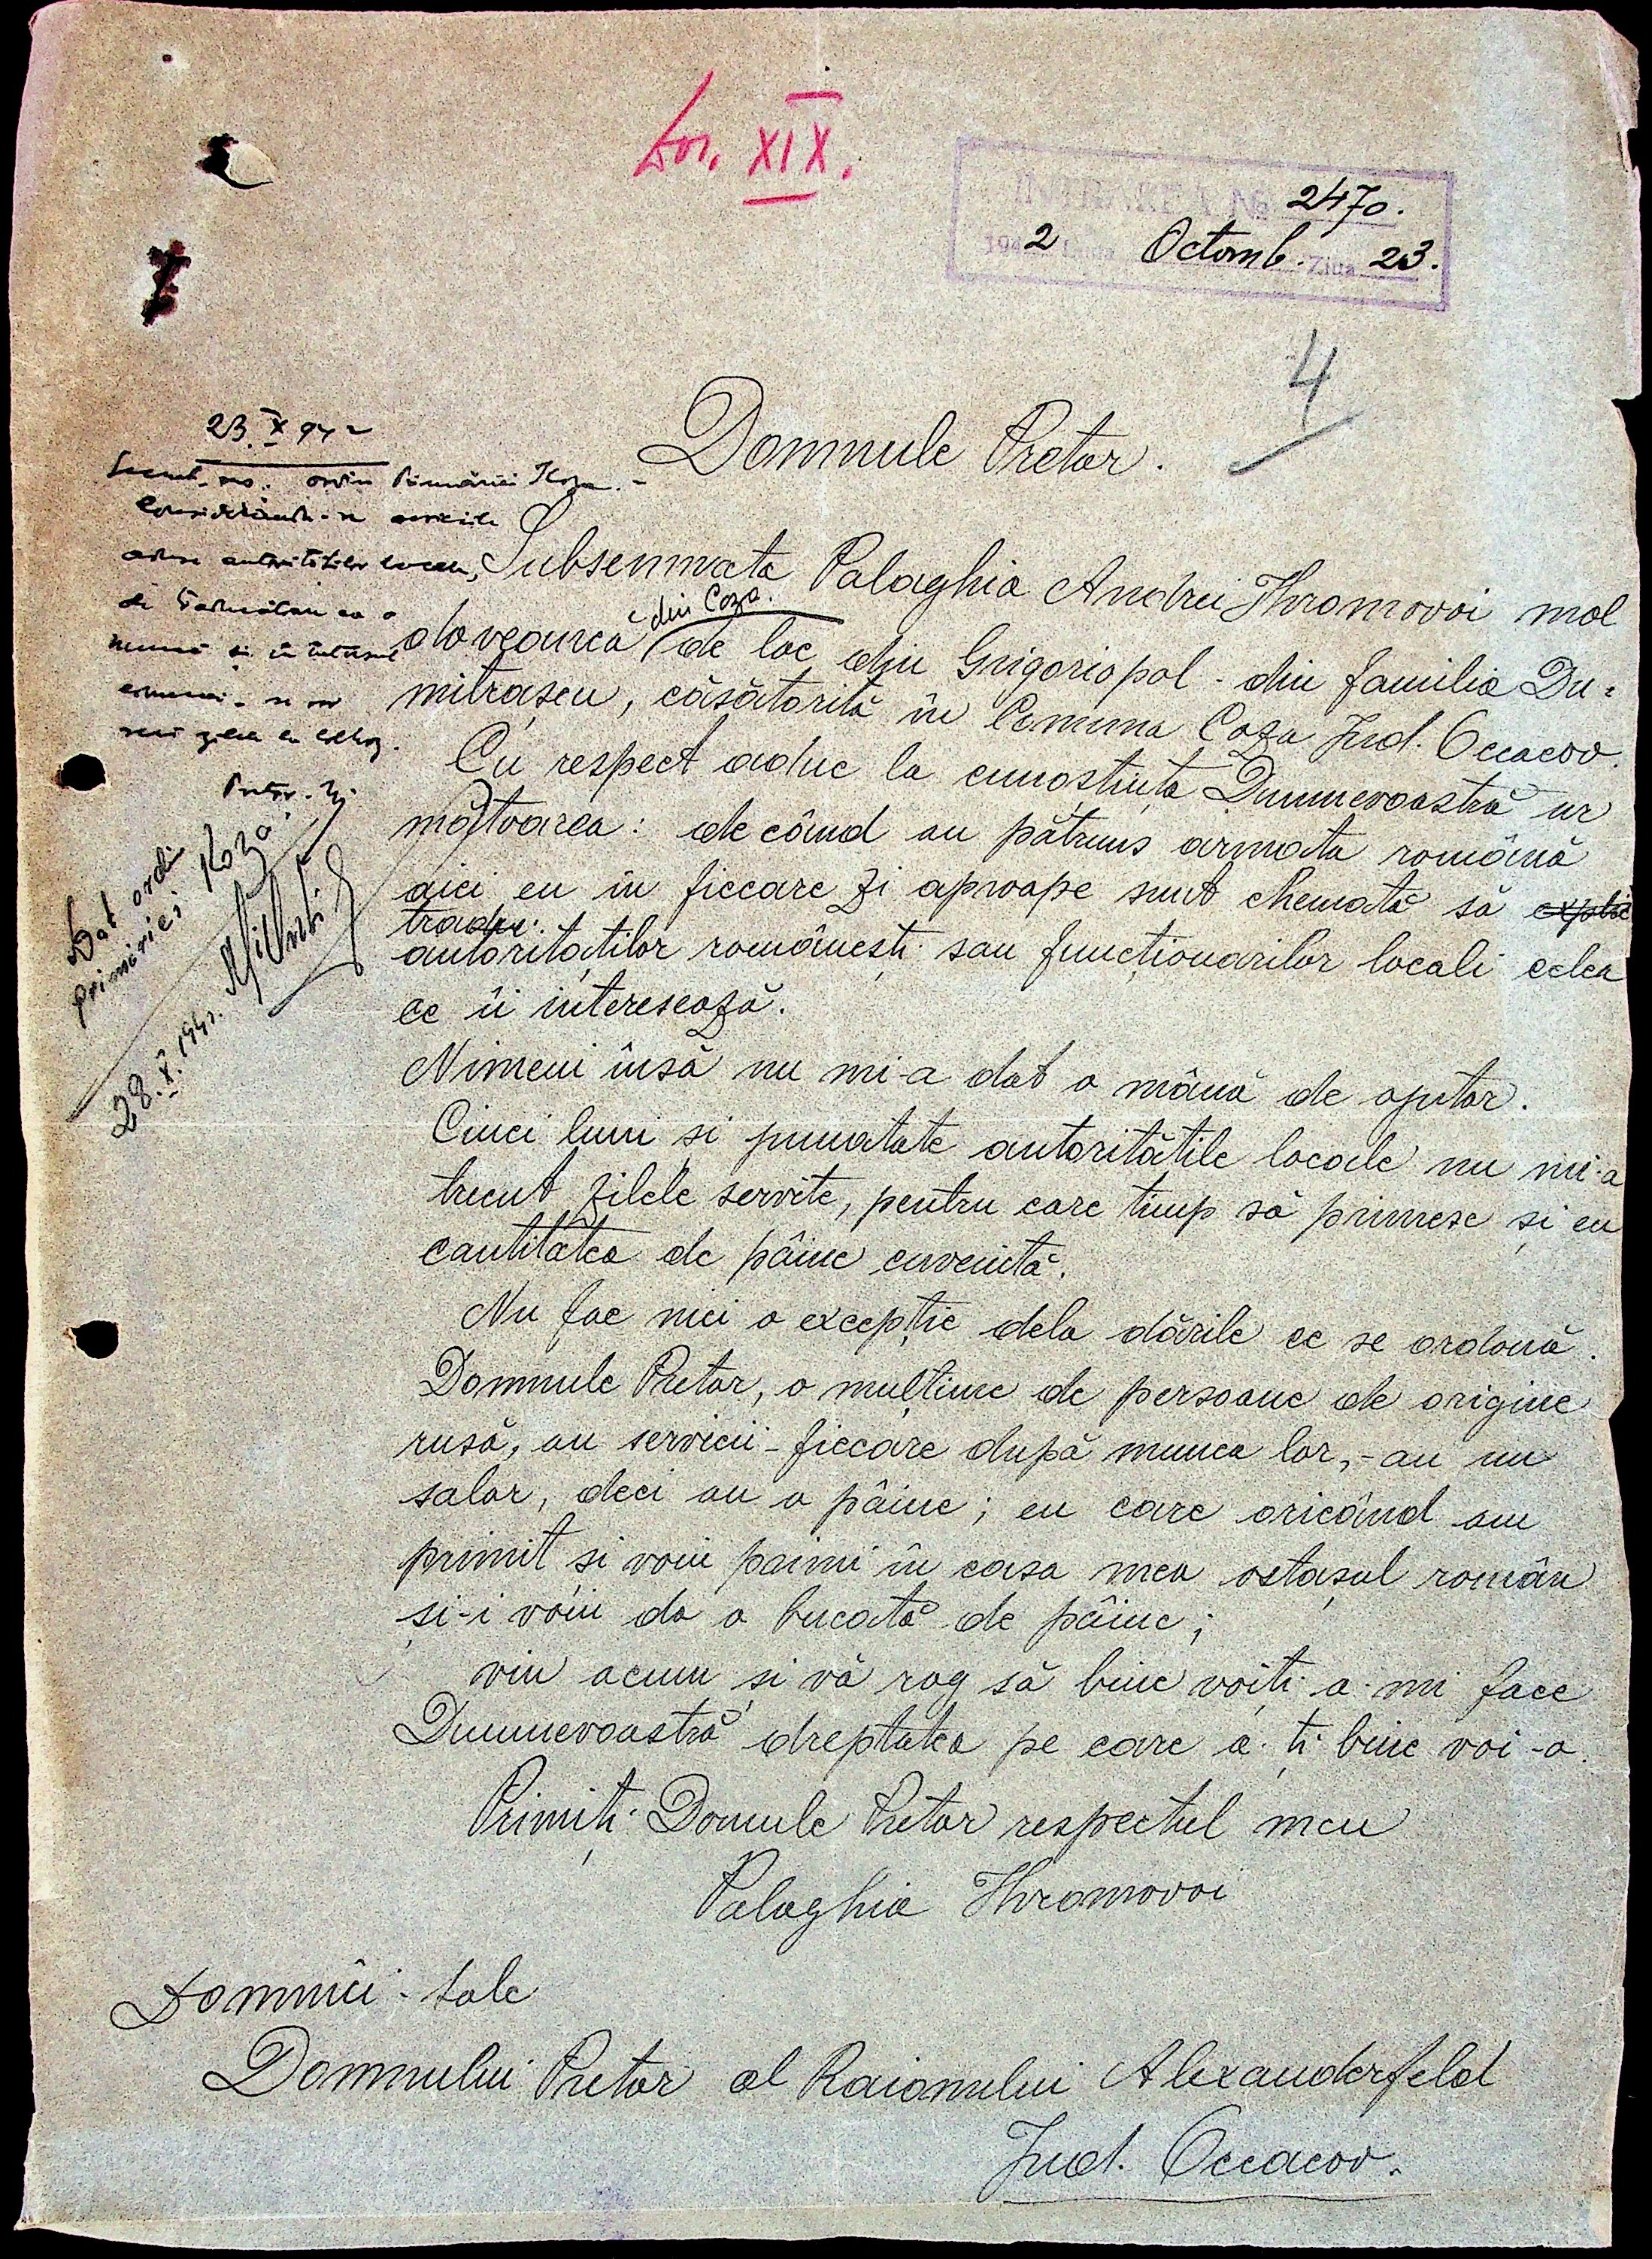 Dos. XIX.
INTRAREA № 2470.
1942 Luna Octomb. Ziua 23.
4
Domnule Pretor.
23.X 942
ordin Primăriei Koza.-
Considerându-se serviciile
aduse autorităților locale,
comunei - se vor
zilele la colhoz.
Pretor.
Dat ordin
primăriei Koza.
28.X.1942.
Subsemnata Palaghia Andrei Hromovoi mol
din Coza.
doveancă de loc din Grigoriopol - din familia Du=
mitrașcu, căsătorită în Comuna Coza Jud. Oceacov.
Cu respect aduc la cunoștința Dumnevoastră ur
mătoarea: de când au pătruns armata română
aici eu în fiecare zi aproape sunt chemată să explic
traduc.
autorităților românești sau funcționarilor locali celea
ce îi interesează.
Nimeni însă nu mi-a dat o mână de ajutor.
Cinci luni și jumatate autoritățile locale nu mi-a
trecut zilele servite, pentru care timp să primesc și eu
cantitatea de pâine cuvenită.
Nu fac nici o excepție dela dările ce se ordonă.
Domnule Pretor, o mulțime de persoane de origine
rusă, au servicii - fiecare după munca lor, - au un
salar, deci au o pâine; eu care oricând am
primit si voiu primi în casa mea ostașul român
și-i voiu da o bucată de pâine;
vin acum și vă rog să bine voiți a-mi face
Dumnevoastră dreptatea pe care a-ți bine voi-o.
Primiți Domule Pretor respectul meu
Palaghia Hromovoi
Domniei-sale
Domnului Pretor al Raionului Alexanderfeld
Jud. Oceacov.